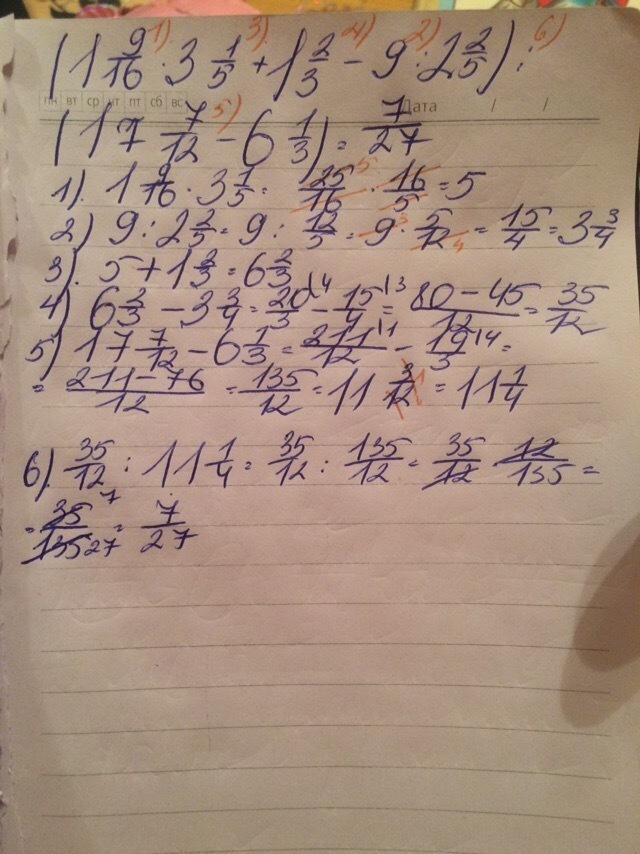 1) 3) 4) 2) 6)
(1 9/16 · 3 1/5 + 1 2/3 - 9 : 2 2/5) :
пн вт ср чт пт сб вс Дата / /
5)
(17 7/12 - 6 1/3) = 7/27
1). 1 9/16 · 3 1/5 = 25/16 5 · 16/5 = 5
2) 9 : 2 2/5 = 9 : 12/5 = 9 3 · 5/12 4 = 15/4 = 3 3/4
3). 5 + 1 2/3 = 6 2/3
4) 6 2/3 - 3 3/4 = 20/3 |4 - 15/4 |3 = 80 - 45/12 = 35/12
5) 17 7/12 - 6 1/3 = 211/12 |1 - 19/3 |4 =
= 211 - 76/12 = 135/12 = 11 3/12 = 11 1/4
6). 35/12 : 11 1/4 = 35/12 : 135/12 = 35/12 · 12/135 =
= 35/135 7 27 = 7/27